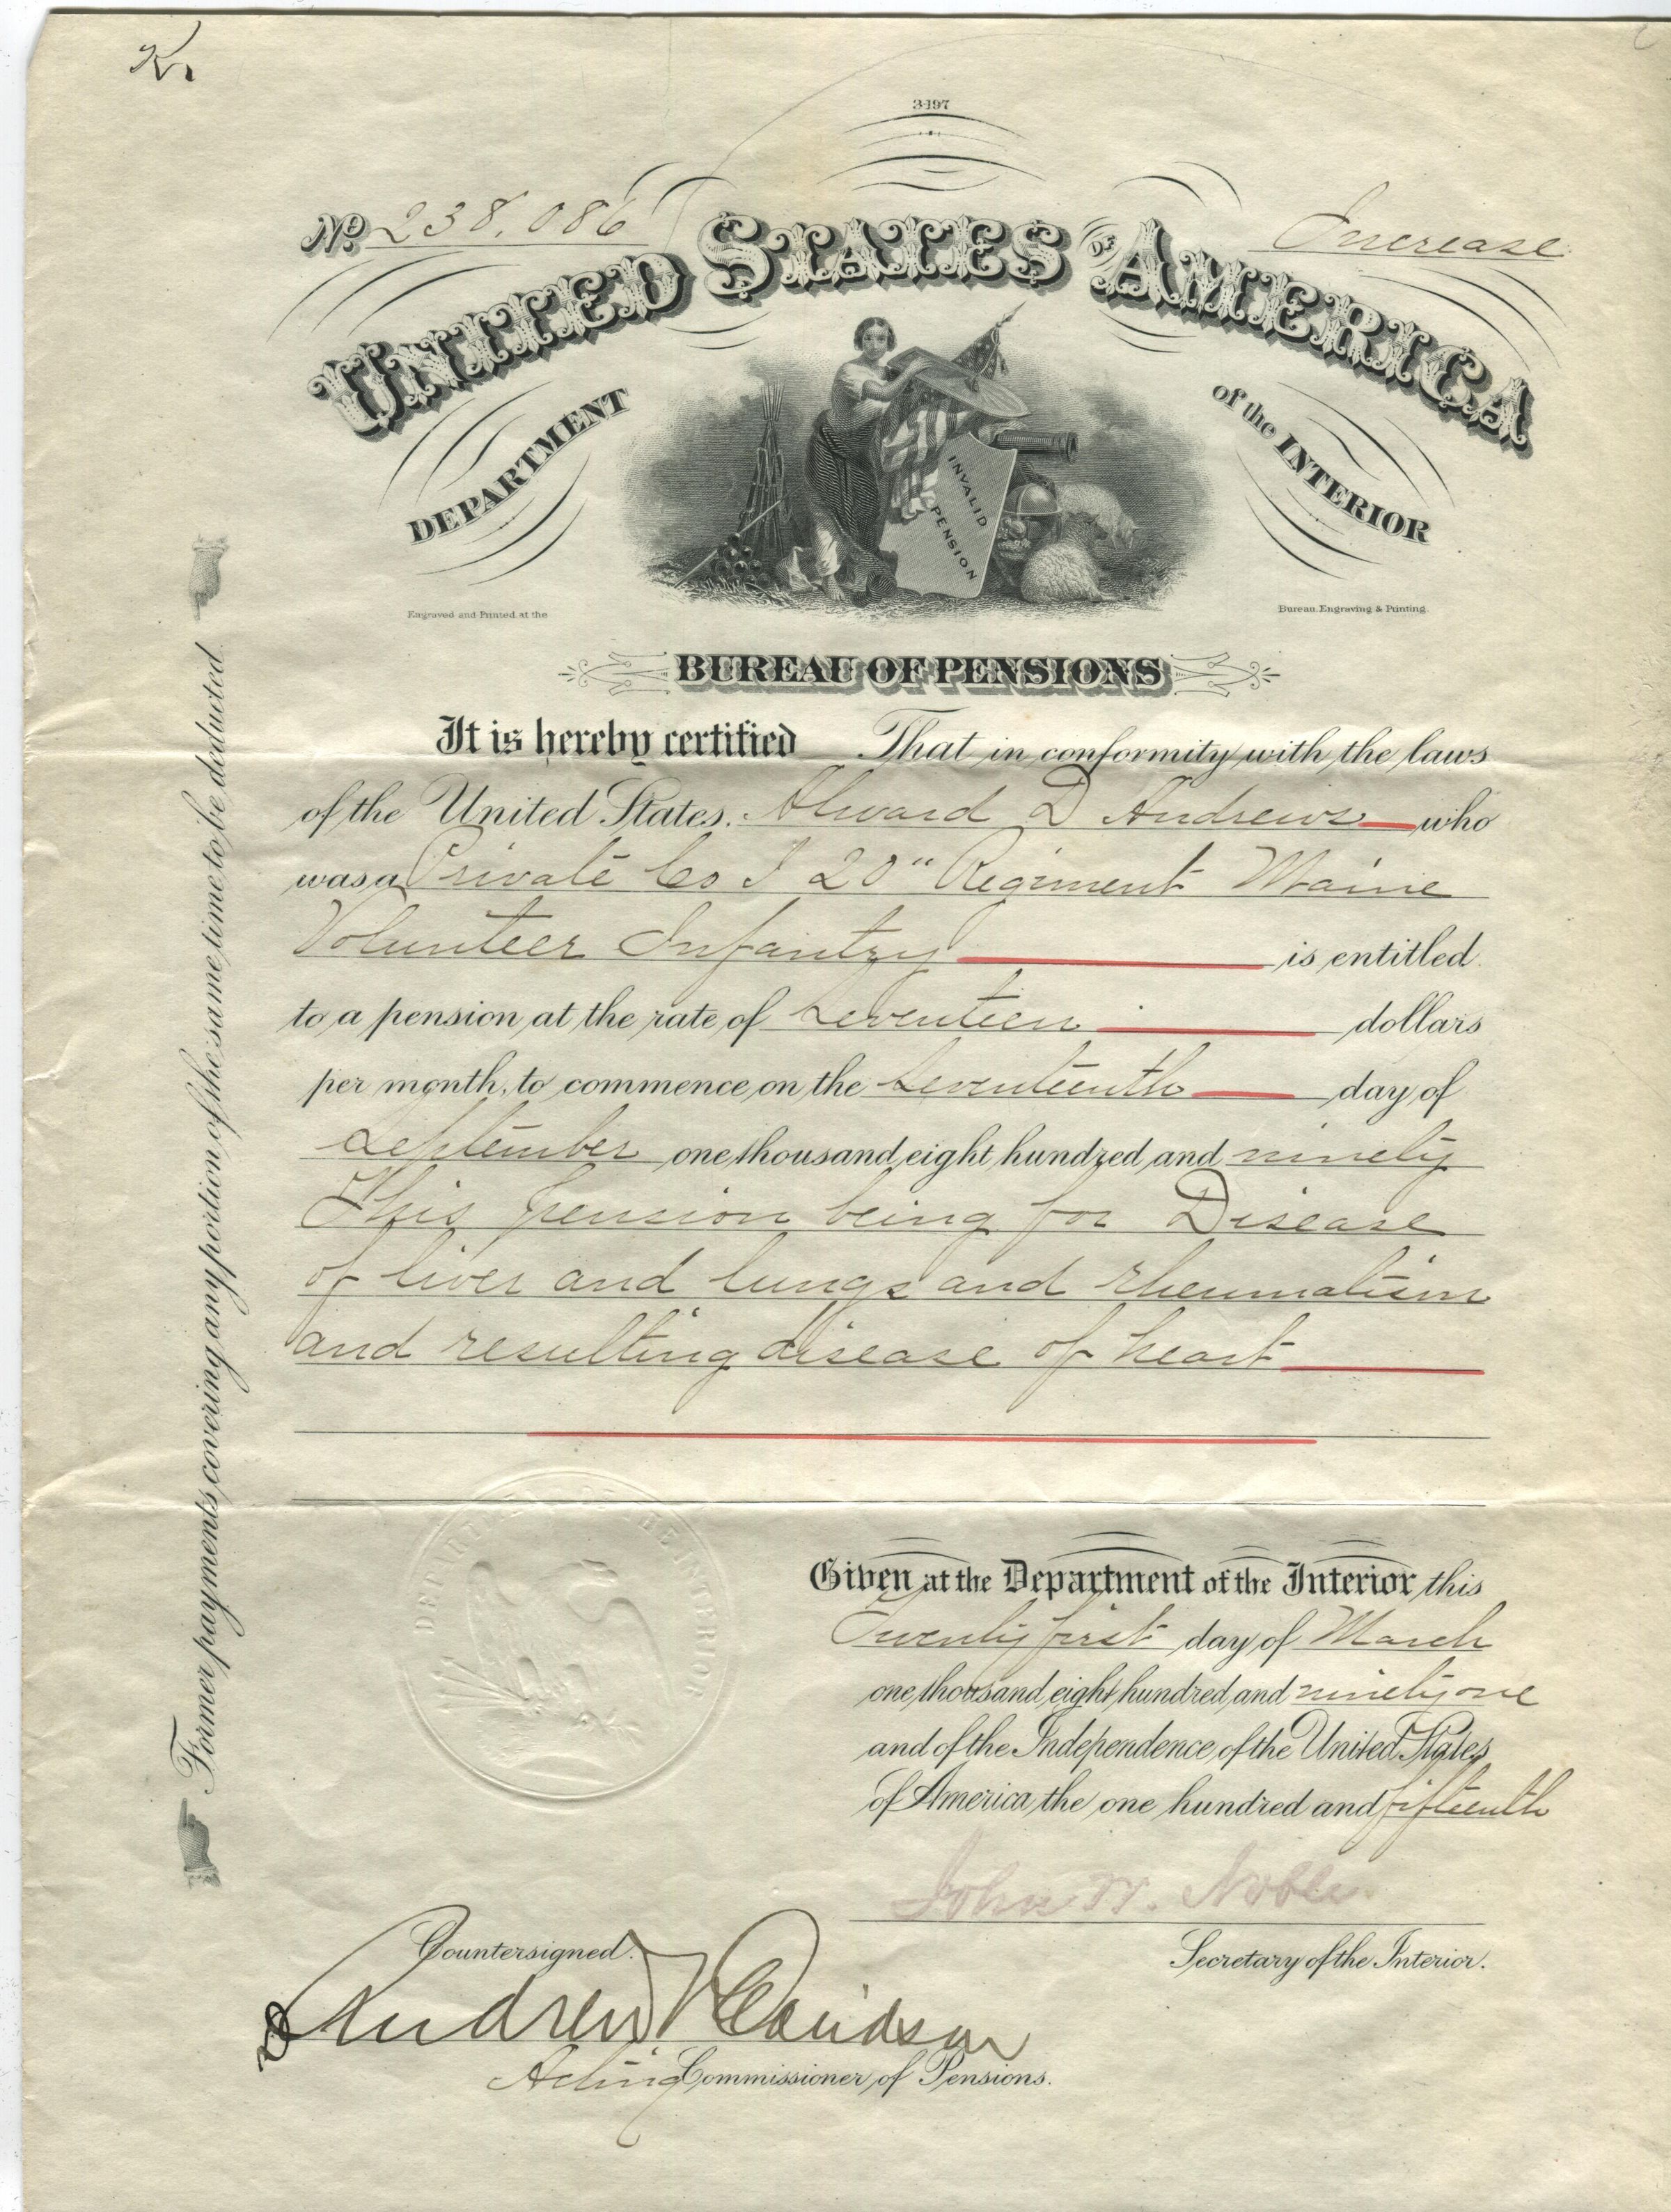 K.
3-197
No. 238,086
Increase
UNITED STATES OF AMERICA
DEPARTMENT of the INTERIOR
INVALID
PENSION
Engraved and Printed at the Bureau, Engraving & Printing
BUREAU OF PENSIONS
It is hereby certified That in conformity with the laws
of the United States, Alward D Andrews who
was a Private Co I 20" Regiment Maine
Volunteer Infantry is entitled
to a pension at the rate of Seventeen dollars
per month, to commence on the Seventeenth day of
September one thousand eight hundred and ninety
This pension being for Disease
of liver and lungs and rheumatism
and resulting disease of heart
Former payments covering any portion of the same time to be deducted.
DEPARTMENT OF THE INTERIOR
Given at the Department of the Interior this
Twenty first day of March
one thousand eight hundred and ninety one
and of the Independence of the United States
of America the one hundred and fifteenth
John W. Noble
Secretary of the Interior.
Countersigned.
Andrew Davidson
Acting Commissioner of Pensions.